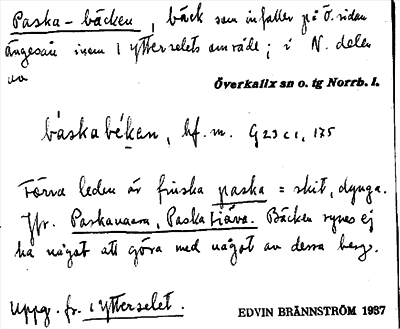 Paska-bäcken, bäck som infaller på Ö. sidan
Ängesån inom Ytterselets område; i N. delen
av
Överkalix sn o. tg Norrb. l.
báskabékɛn, bf. m. G23c1, 175
Förra leden är finska paska = skit, dynga.
Jfr. Paskavaara, Paskatjåva. Bäcken synes ej
ha något att göra med något av dessa berg.
Uppg. fr. i Ytterselet.
EDVIN BRÄNNSTRÖM 1937